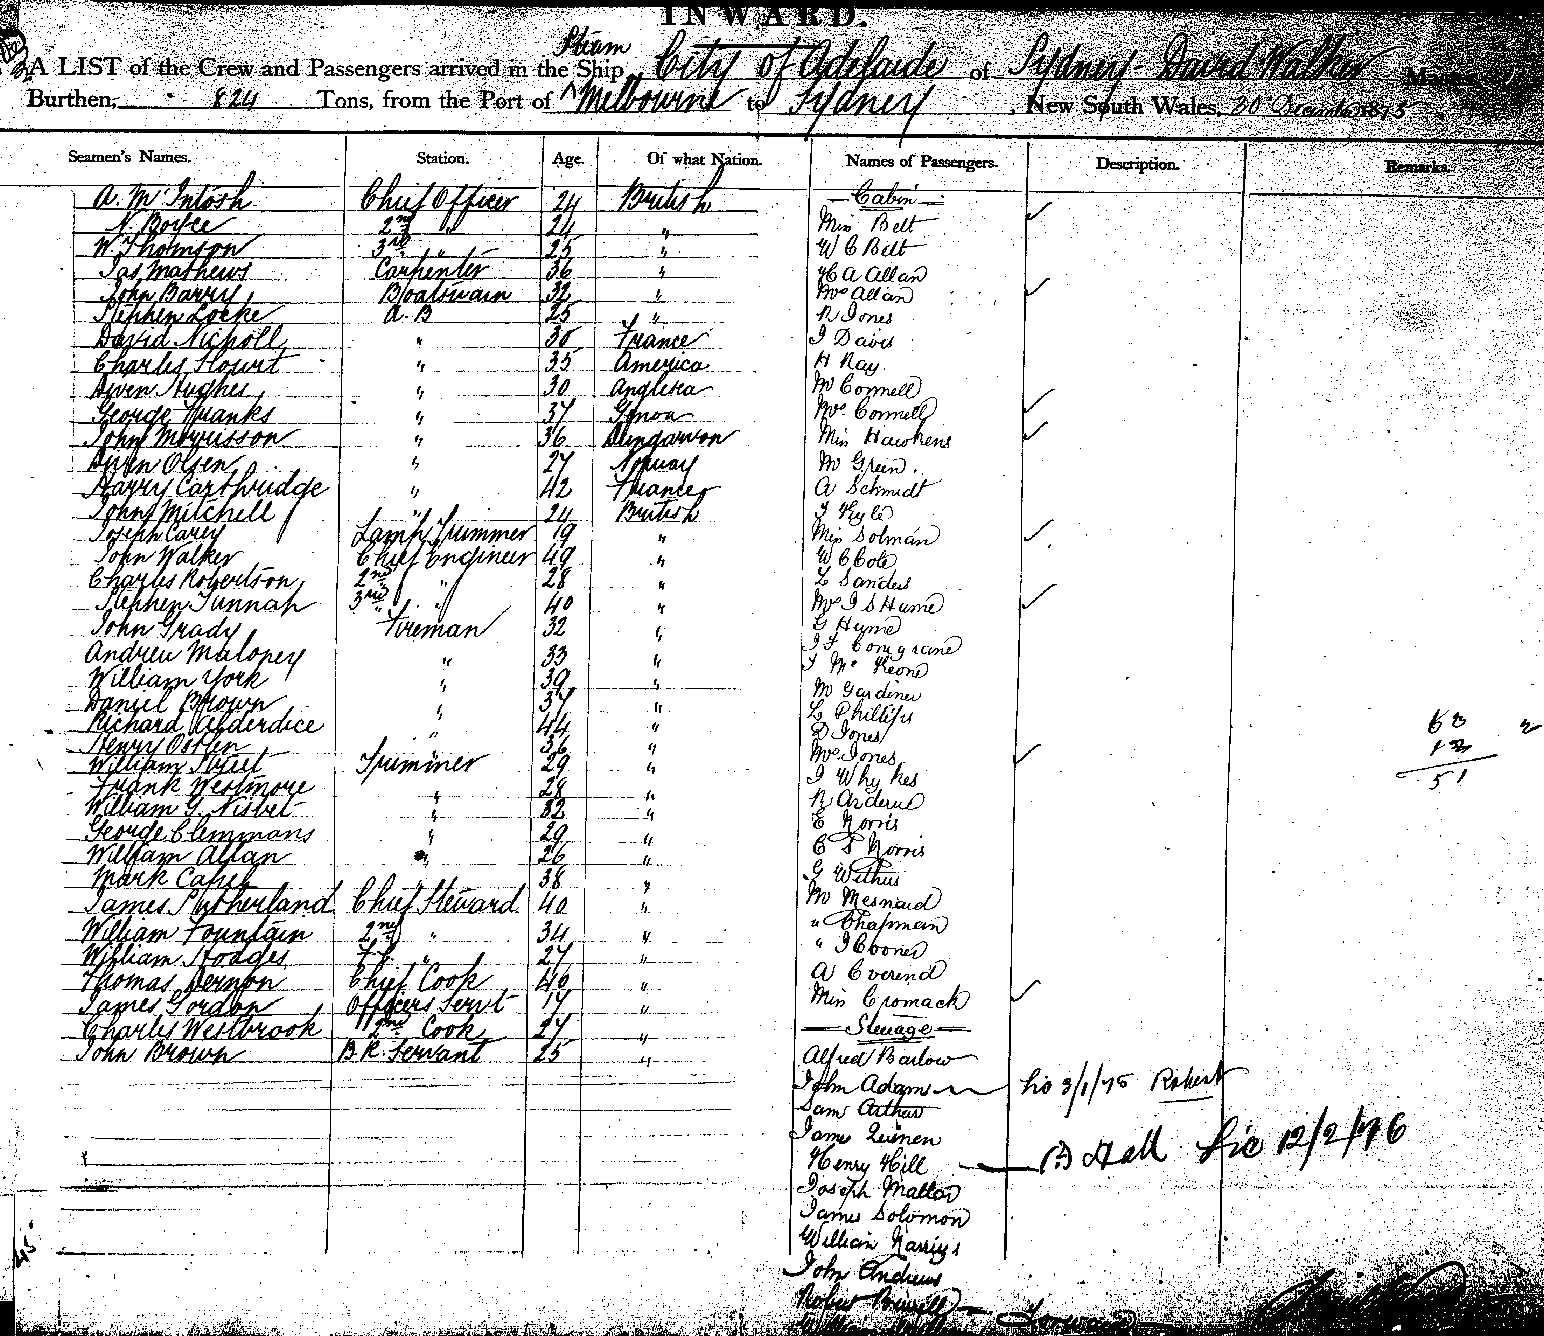 INWARD.
A LIST of the Crew and Passengers arrived in the Ship Steam City of Adelaide of Sydney - David Walker Master,
Burthen, 824 Tons, from the Port of Melbourne to Sydney, New South Wales, 30 December 1875
Seamen's Names. Station. Age. Of what Nation. Names of Passengers. Description. Remarks.
A. McIntosh Chief Officer 24 British — Cabin —
N. Boyce 2nd " 24 " Miss Belt
W. Thomson 3rd " 25 " W C Belt
Jas Mathews Carpenter 36 " H A Allan
John Barry Boatswain 32 " Mrs Allan
Stephen Locke A.B 25 " R Jones
David Nicholl " 30 France J Davis
Charles " 35 America H Ray
Owen Hughes " 30 Anglesea Mr Connell
George Franks " 37 Genoa Mrs Connell
John Morrisson " 36 Dungarvon Miss Hawkens
Owen Olsen " 27 Norway Mr Green.
Harry Cartbridge " 42 France A Schmidt
John Mitchell " 24 British J Kyle
Joseph Carey Lamp Trimmer 19 " Miss Solman
John Walker Chief Engineer 49 " W C Cole
Charles Robertson 2nd " 28 " L Sanders
Stephen Tunnah 3rd " 40 " Mrs J S Hume
John Grady Fireman 32 " G Hume
Andrew Maloney " 33 " J F
William York " 39 " J McKeone
Daniel Brown " 37 " Mr Gardiner
Richard Alderdice " 44 " L Phillips
Henry " 36 " D Jones
William Street Trimmer 29 " Mrs Jones
Frank Westmore " 28 " J Whykes
William G. Nisbet " 32 " R
George Clemmans " 29 " E Norris
William Allan " 26 " C S Norris
Mark " 38 " G Withus
James Sutherland Chief Steward 40 " Mr Mesnaid
William Fountain 2nd " 34 " " Chapman
William Hodges F.C. " 27 " " J
Thomas Vernon Chief Cook 40 " A Everend
James Gordon Officers Servt 17 " Miss Cromack
Charles Westbrook 2nd Cook 27 " — Steerage —
John Brown B.R. Servant 25 " Alfred Barlow
John Adams Lic 3/1/75 Robert
Sam Arthur
James
Henry Hill B Hall Lic 12/2/76
Joseph Mallar
James Solomon
William Harrigs
John Andrews
Robert
Forward
63
12
51
45